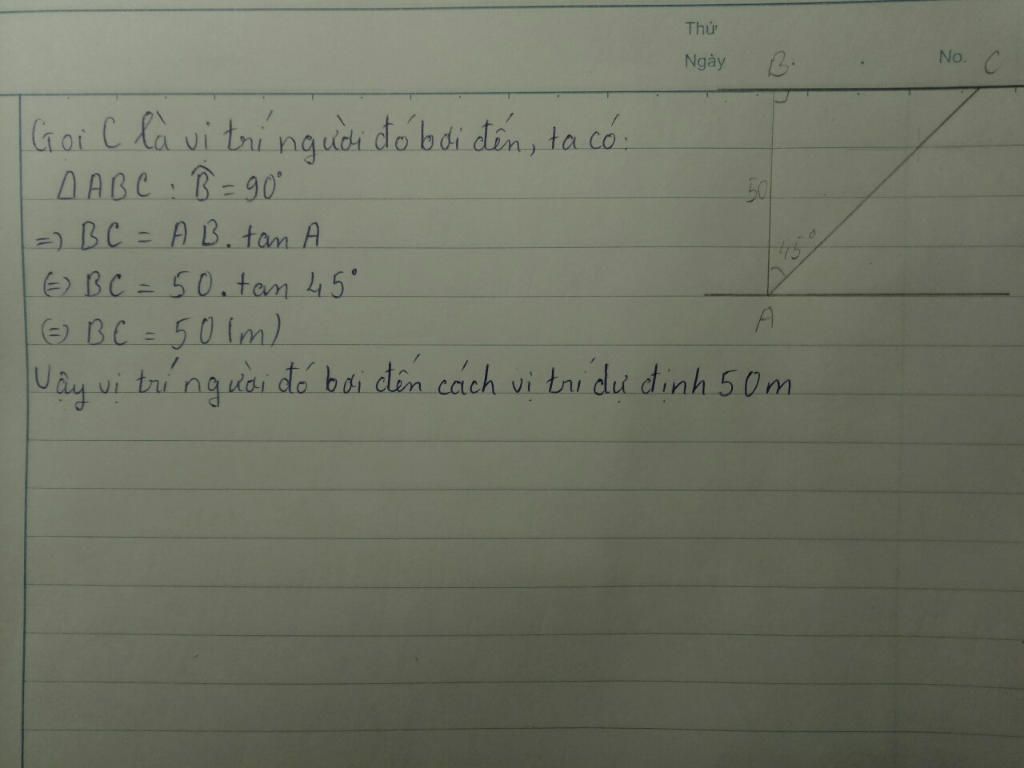 Thứ
Ngày
No.
B
C
Gọi C là vị trí người đó bơi đến, ta có:
ΔABC : B̂ = 90°
=) BC = AB. tan A
(=) BC = 50. tan 45°
(=) BC = 50 (m)
Vậy vị trí người đó bơi đến cách vị trí dự định 50m
50
45°
A